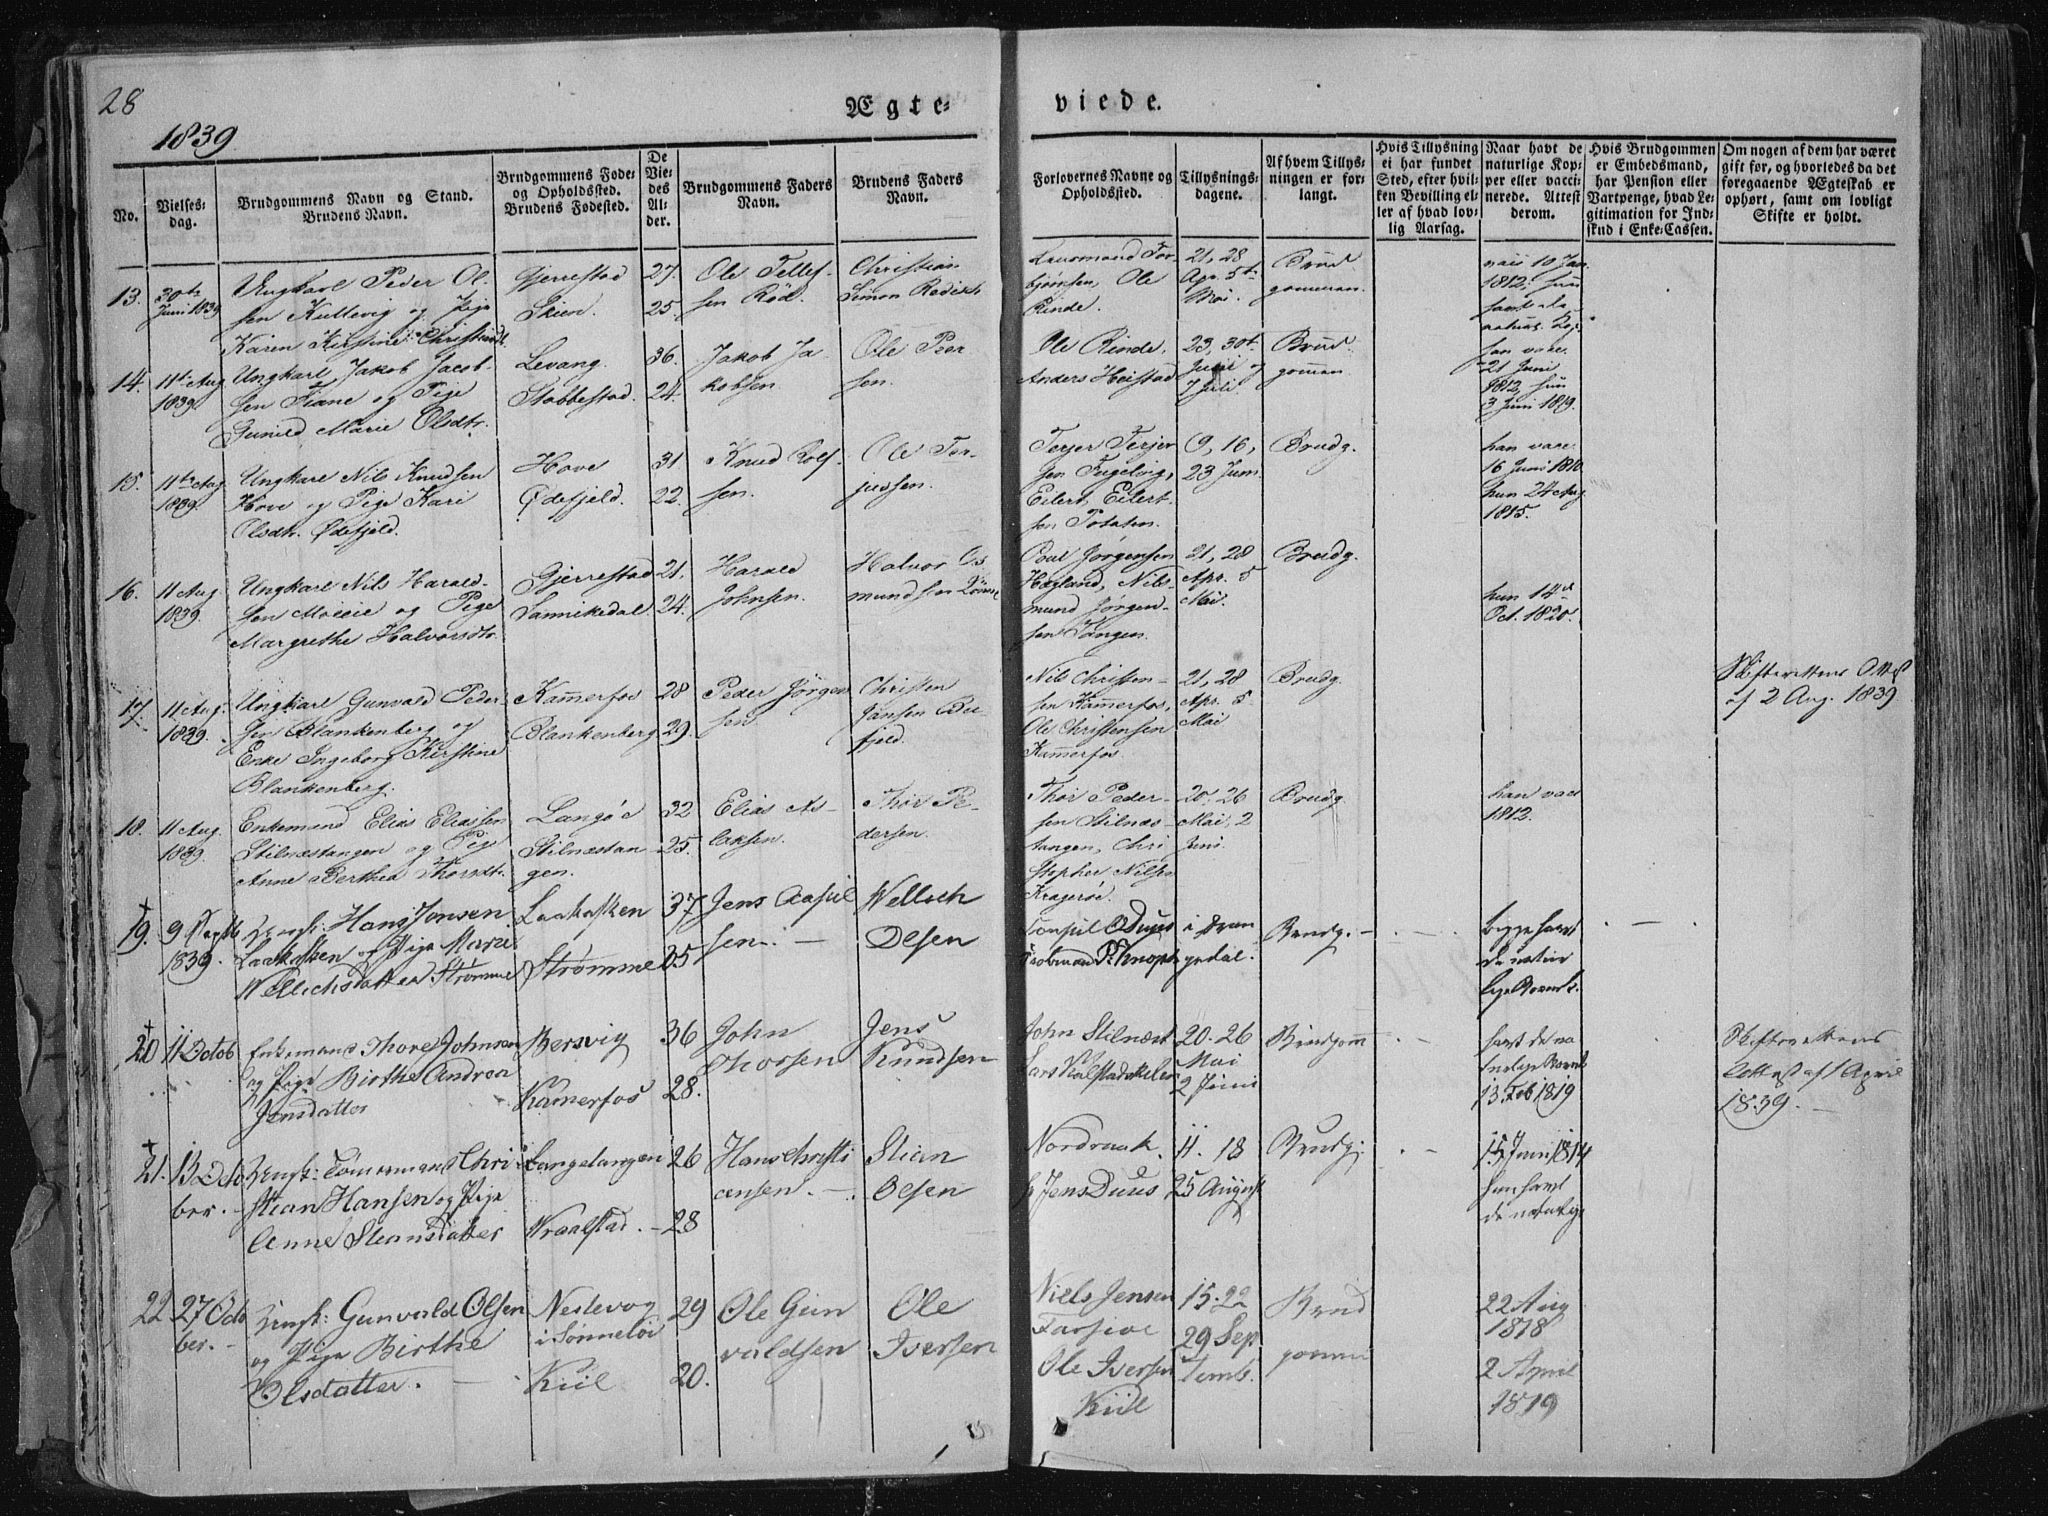 28
Ægte-
viede.
1839
No.
Vielses-
dag.
Brudgommens Navn og Stand.
Brudens Navn.
Brudgommens Føde-
og Opholdssted.
Brudens Fødested.
De
Vie-
des
Al-
der.
Brudgommens Faders
Navn.
Brudens Faders
Navn.
Forlovernes Navne og
Opholdssted.
Tillysnings-
dagene.
Af hvem Tillys-
ningen er for-
langt.
Hvis Tillysning
ei har fundet
Sted, efter hvil-
ken Bevilling el-
ler af hvad lov-
lig Aarsag.
Naar havt de
naturlige Kop-
per eller vacci-
nerede. Attest
derom.
Hvis Brudgommen
er Embedsmand,
har Pension eller
Vartpenge, hvad Le-
gitimation for Ind-
skud i Enke-Cassen.
Om nogen af dem har været
gift før, og hvorledes da det
foregaaende Ægteskab er
ophørt, samt om lovligt
Skifte er holdt.
13.
30te
Juni 1839
Ungkarl Peder Ol-
sen Kullevig og Pige
Karen Kirstine Christiandt.
Gjerrestad
Skien
27.
25.
Ole Tellef-
sen Röd.
Christian
Simon
Lausmand Tor-
bjørnsen, Ole
Rinde.
21, 28
Apr. 5te
Mai.
Brud-
gommen.
1812, hun
14.
11te Aug
1839.
Ungkarl Jakob Jacob-
sen Tiane og Pige
Gunild Marie Olsdtr.
Levang.
Stabbestad.
36.
24.
Jakob Ja-
kobsen.
Ole Peer
sen.
Ole Rinde,
Anders Heistad
23, 30te
Juni og
7 Juli.
Brud-
gommen.
han vacc.
21 Juni
1812, hun
3 Juni 1819.
15.
11te Aug
1839.
Ungkarl Nils Knudsen
Hove og Pige Kari
Olsdtr. Ødefjeld.
Hove
Ødefjeld.
31
22.
Knud Rolf-
sen.
Ole Ter-
jusen.
Terjer Terjer-
sen Fugelvig,
Eilert Eilert-
sen Potaten.
9, 16,
23 Juni.
Brudg.
han vacc.
16 Juni 1810
hun 24 Aug
1815.
16.
11 Aug
1839.
Ungkarl Nils Harald-
sen Moeie og Pige
Margrethe Halvorsdtr.
Gjerrestad
Sannikedal.
21.
24.
Harald
Johnsen.
Halvor Os-
mundsen
Poul Jörgensen
Hegland, Nils-
mund Jörgen-
sen Tangen.
21, 28
Apr. 5
Mai.
Brudg.
hun 14de
Oct. 1820.
17.
11 Aug.
1839.
Ungkarl Gunvald Peder-
sen Blankenberg og
Enke Ingeborg Kirstine
Blankenberg.
Kammerfos
Blankenberg
28
29.
Peder Jörgen
sen.
Christen
Jansen Bu-
fjeld.
Nils Christen-
sen Kammerfos,
Ole Christensen
Kammerfos.
21, 28
Apr. 5
Mai
Brudg.
Skifterettens Attest
af 2 Aug. 1839
18.
11 Aug.
1839
Enkemand Elias Eliassen
Stilnæstangen og Pige
Anne Berthea Thorsdt.
Langöe
Stilnæstan
gen.
32
25.
Elias As-
laksen.
Thor Pe-
dersen.
Thor Peder-
sen Stilnæs-
tangen, Chri
stopher Nilsen
Kragerøe.
20, 26
Mai, 2
Juni.
Brudg.
han vacc
1812.
19.
9 Septb
1839.
Ungk: Hans Jensen
Laakasken og Pige Marie
Wellichsdatter Strømme
Laakasken
Strømme
37
35
Jens Aasul
sen. —
Wellich
Olsen
Consul O Duus
P. Knoph
i Dran
gedal.
Brudg.
begge havt
de natur
lige
20
11 Octob
Enkemand Thore Johnsen
og Pige Birthe Andrea
Jensdatter
Bersvig
Kamerfos
36
28.
John
Thorsen
Jens
Knudsen
John Stilnæst
Lars Kalstadkilen
20. 26
Mai
2 Juni
Brudgom
havt de na
13 Feb 1819
Skifterettens
Attest af 1 April
1839. —
21.
13 Octo
ber. -
Ungk: Tømermand Chri
stian Hansen og Pige
Anne Stiansdatter
Langetangen
Wraalstad. -
26
28
Hans Christi
ansen. —
Stian
Olsen
Nordraak
Jens Duus
11. 18
25 August
Brudg:
15 Juni 1814
hun havt
de naturlige
22
27 Octo
ber. -
Ungk: Gunvald Olsen
og Pige Birthe
Olsdatter. —
Nestevog
i Sønneløv
Kiil
29
20.
Ole Gun
valdsen
Ole
Iversen
Niels Jensen
Farsive
Ole Iversen
Kiil
15. 22
29 Sep
temb.
Brud
gommen
22 Aug
1818
2 April
1819